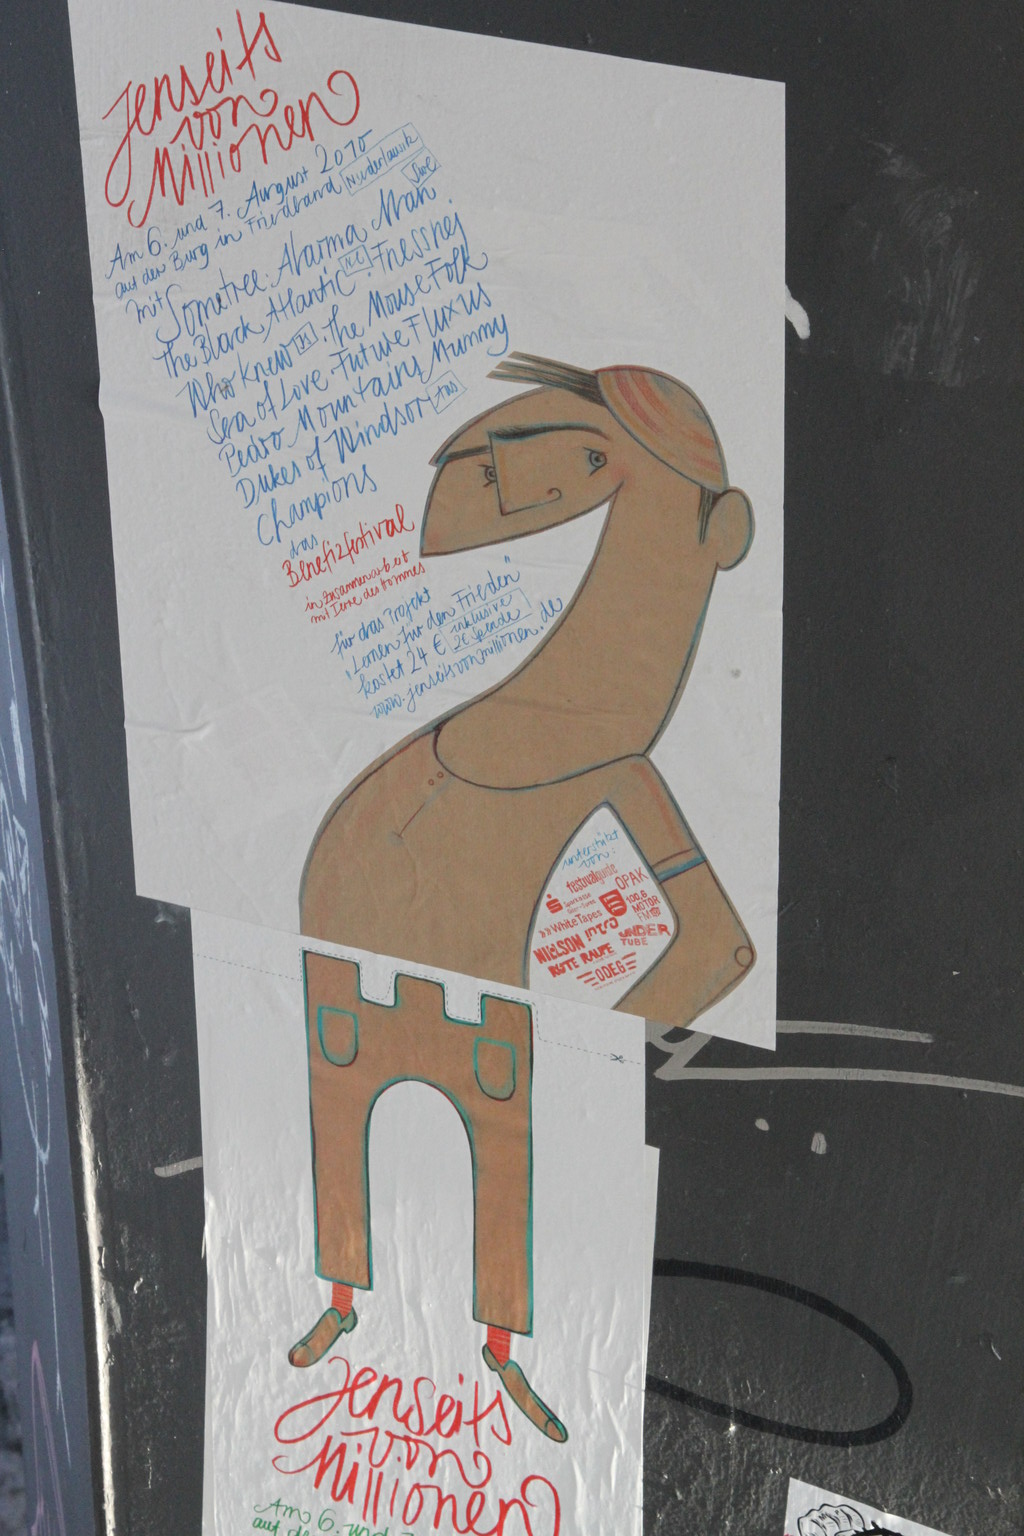 Jenseits
von
Millionen
Am 6. und 7. August 2010
auf der Burg in Friedland Niederlausitz
mit Sometree · Abarma Aban
The Black Atlantic · Fressnej
Who knew · The Mouse Folk
Sea of Love · Future Fluxus
Pedro Mountains Mummy
Dukes of Windsor
Champions
das
Benefizfestival
in Zusammenarbeit
mit Terre des Hommes
für das Projekt
"Lernen für den Frieden"
kostet 24 € inklusive
2€ Spende
www.jenseitsvonmillionen.de
unterstützt
von:
festivalguide
Sparkasse
OPAK
100,6
MOTOR
FM
»White Tapes
intro
NIELSON
UNDER
TUBE
ROTE RAUPE
ODEG
Jenseits
von
Millionen
Am 6. und 7
auf de